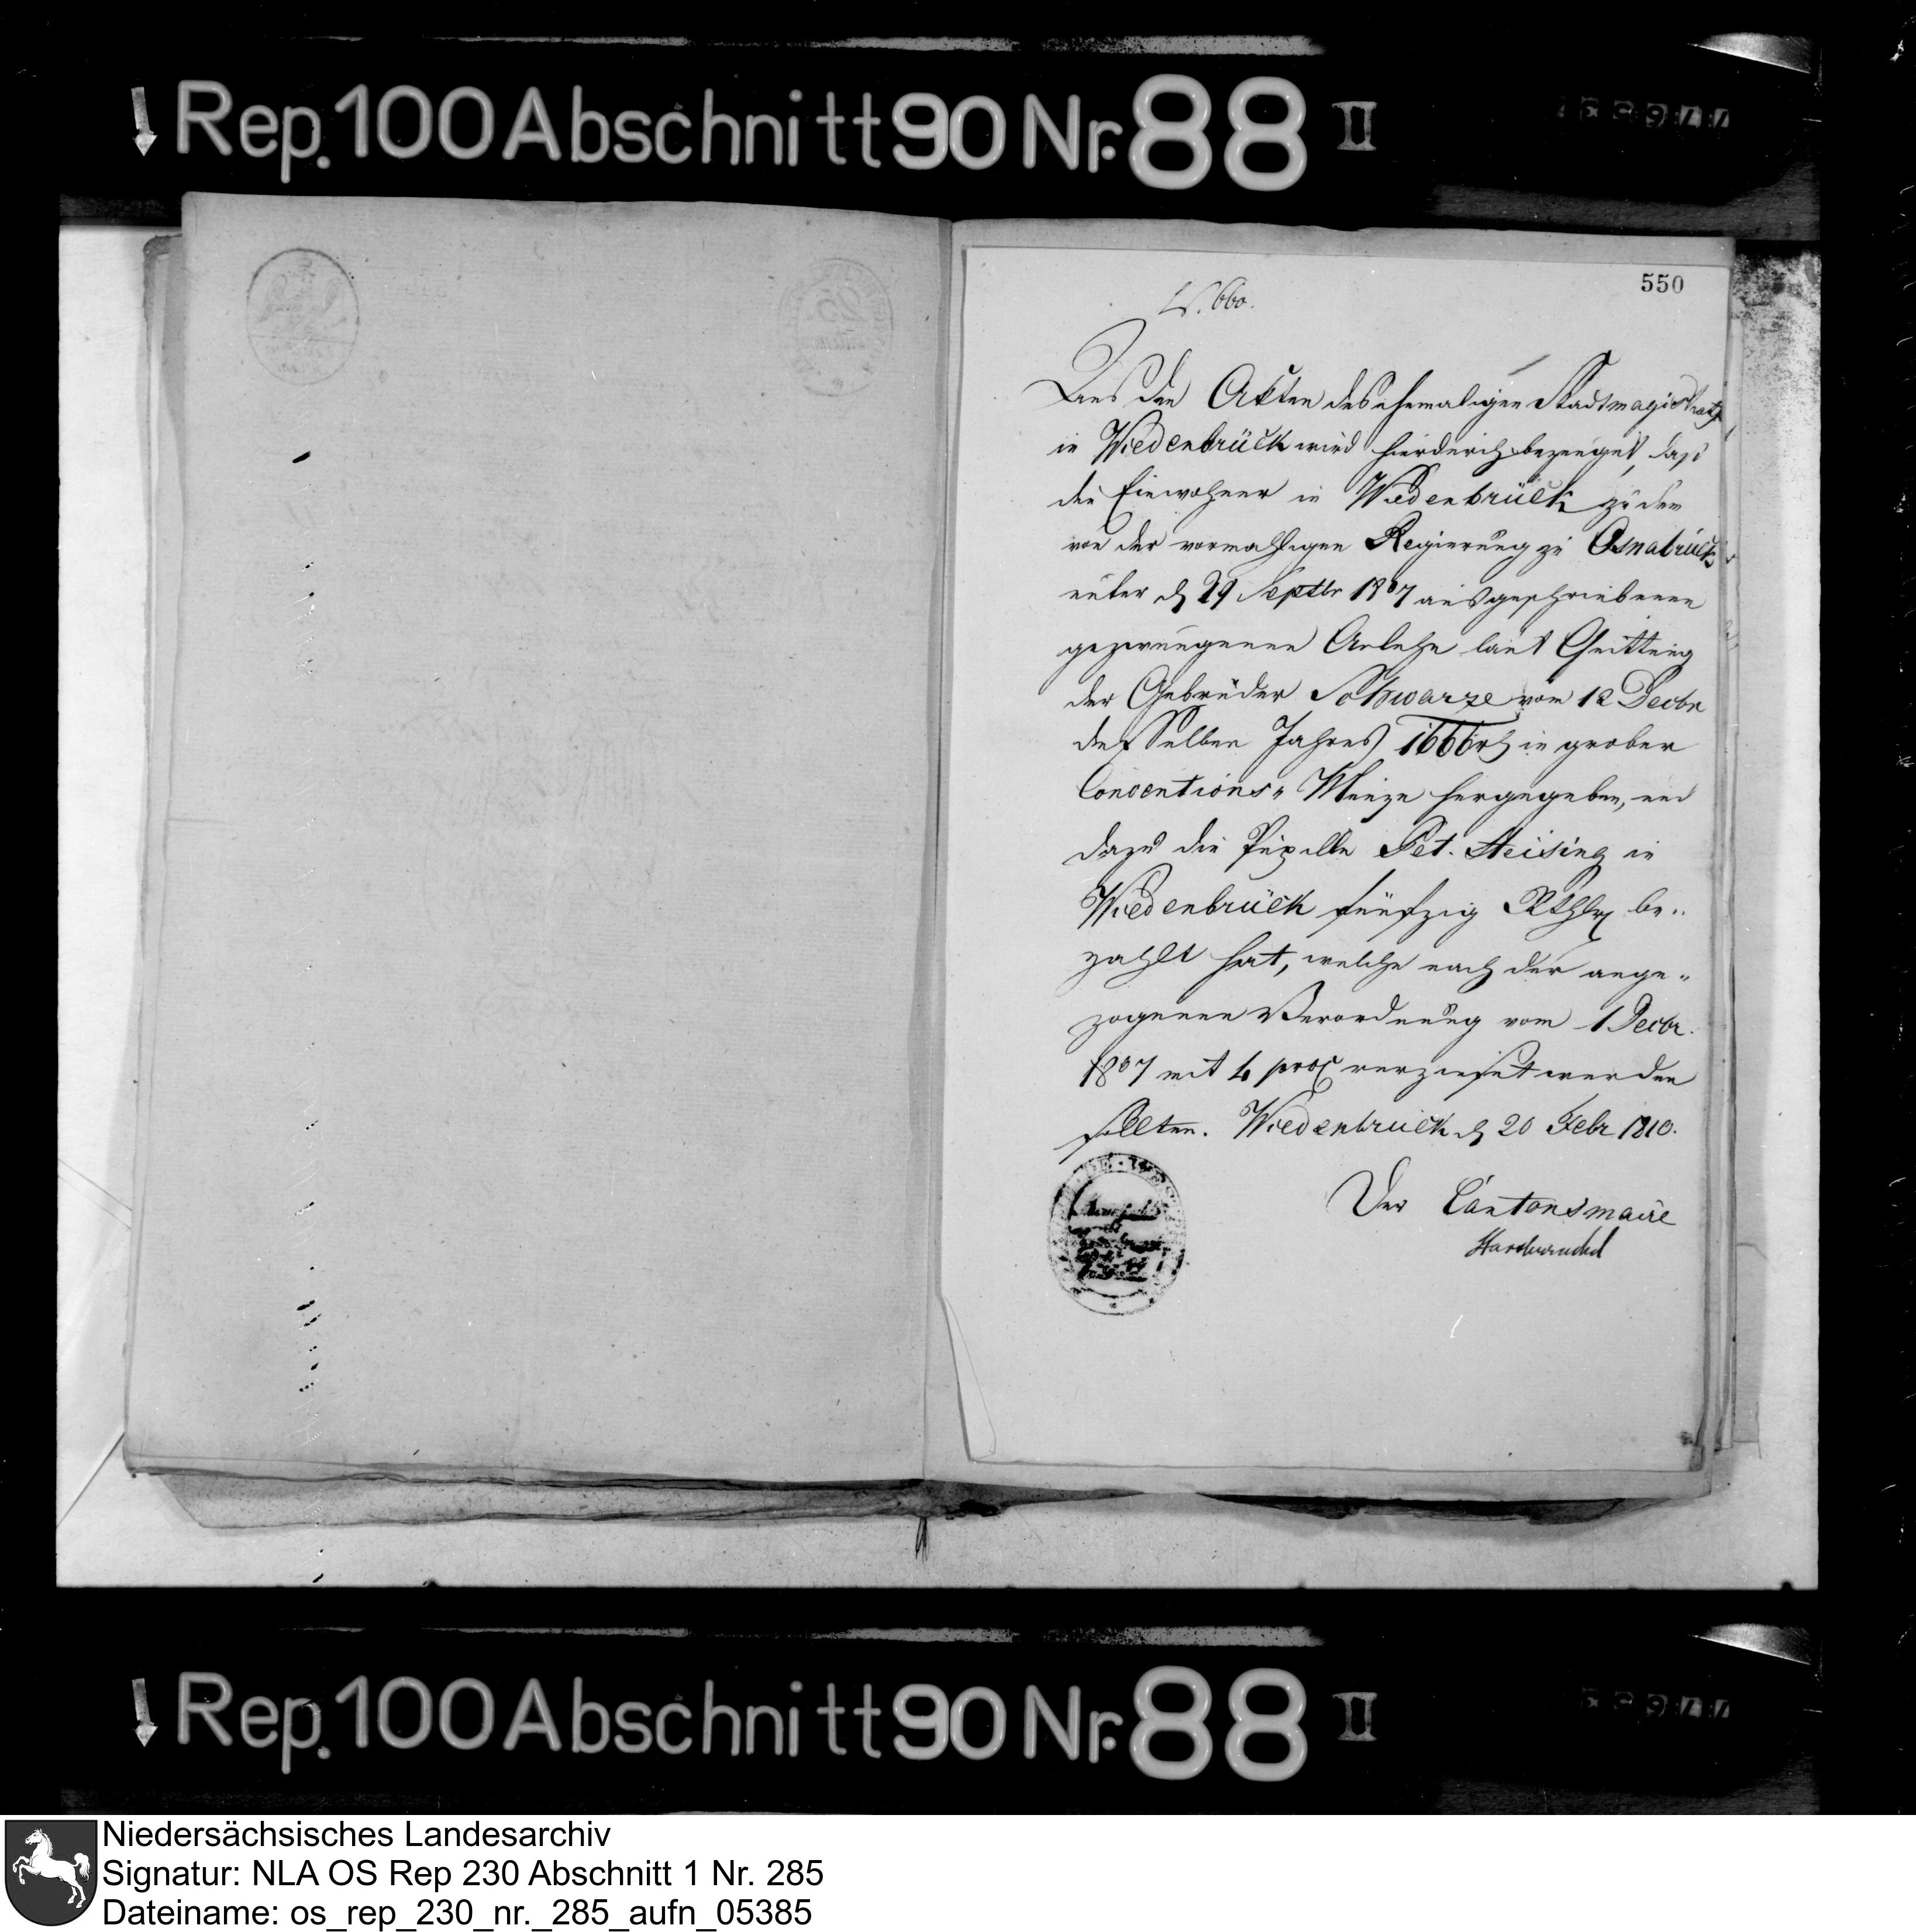 Rep. 100 Abschnitt 90 Nr. 88 II
550
N. 660.
Aus den Akten des ehemaligen Stadtmagistrats
in Wiedenbrück wird hierdurch bezeuget, daß
die Einwohner in Wiedenbrück zu dem
von der vormahligen Regierung zu Osnabrück
unter d 29 Septbr 1807 ausgeschriebenen
gezwungenen Anlehn laut Quittung
der Gebrüder Schwarze vom 12 Decbr
desselben Jahres 1666 rh in grober
Conventions" Münze hergegeben, und
dazu die Pupille Pet. Heising in
Wiedenbrück fünfzig Rthlr be"
zahlt hat, welche nach der ange"
zogenen Verordnung vom 1 Decbr.
1807 mit 4 proC verzinset werden
sollten. Wiedenbrück d 20 Febr 1810.
Der Cantonsmaire
Rep. 100 Abschnitt 90 Nr. 88 II
Niedersächsisches Landesarchiv
Signatur: NLA OS Rep 230 Abschnitt 1 Nr. 285
Dateiname: os_rep_230_nr._285_aufn_05385